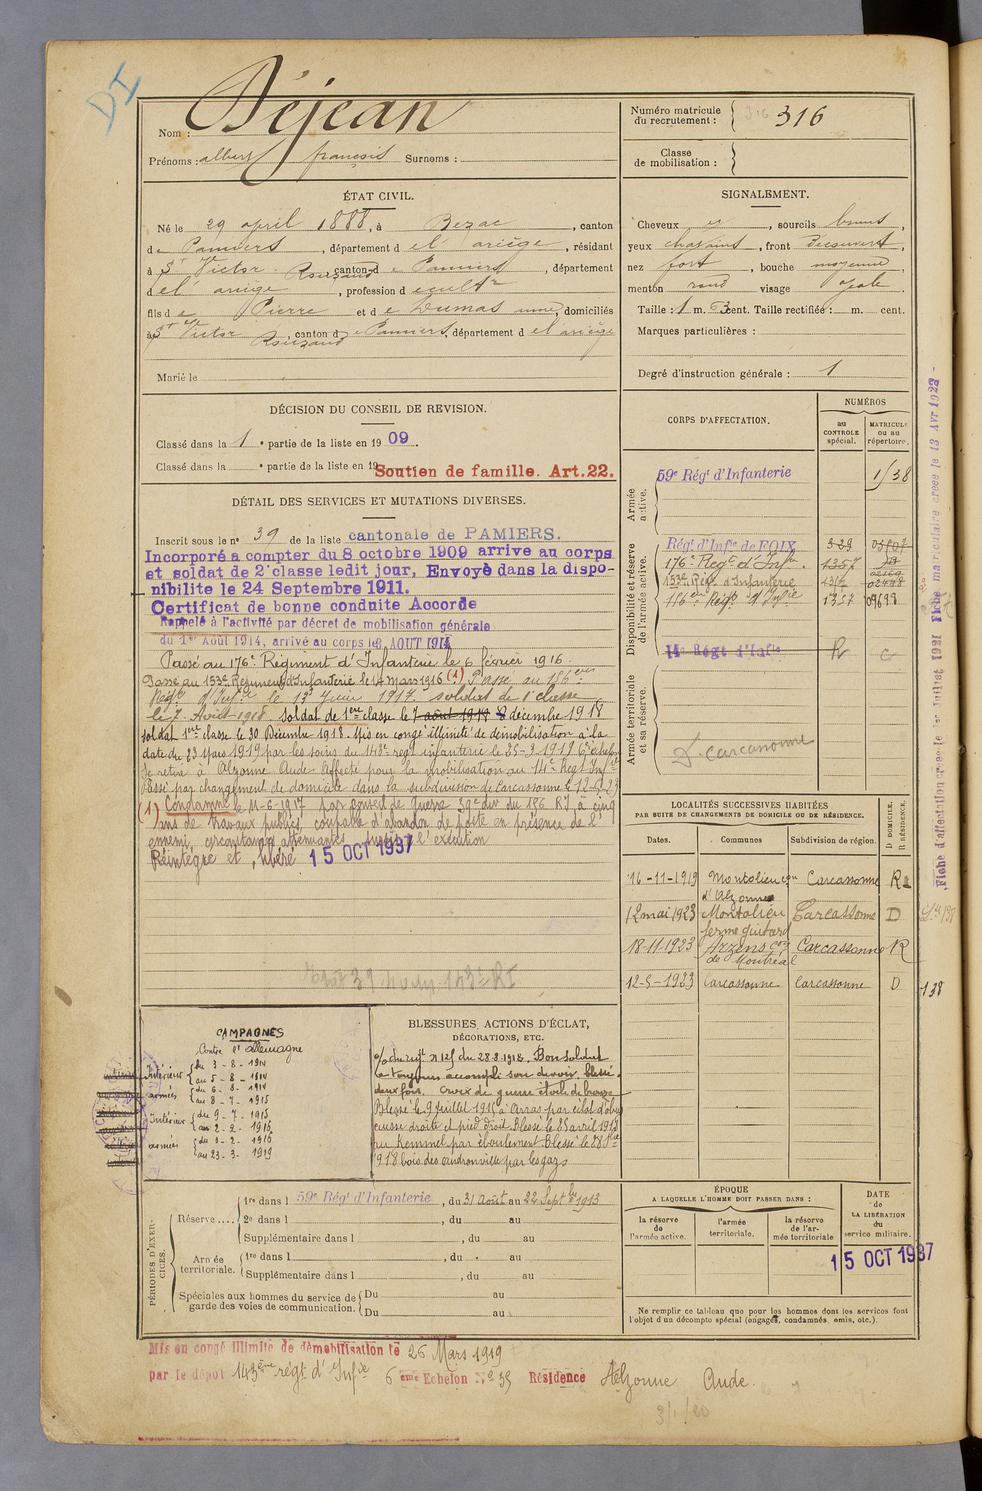 DI
Nom : Déjean
Prénoms : albert françois Surnoms :
Numéro matricule du recrutement : 316
Classe de mobilisation :
ÉTAT CIVIL.
Né le 29 april 1888, à Bezac, canton
de Pamiers, département de l'ariège, résidant
à St Victor Rouzaud canton de Pamiers, département
de l'ariège, profession de cultr
fils de Pierre et de Dumas anne, domiciliés
à St Victor Rouzaud, canton de Pamiers, département de l'ariège
Marié le
SIGNALEMENT.
Cheveux et, sourcils bruns,
yeux chatains, front découvert,
nez fort, bouche moyenne,
menton rond visage ovale.
Taille : 1 m. 63 cent. Taille rectifiée : m. cent.
Marques particulières :
Degré d'instruction générale : 1
DÉCISION DU CONSEIL DE REVISION.
Classé dans la 1e partie de la liste en 1909.
Classé dans la e partie de la liste en 19
Soutien de famille. Art.22.
DÉTAIL DES SERVICES ET MUTATIONS DIVERSES.
Inscrit sous le no 39 de la liste cantonale de PAMIERS.
Incorporé a compter du 8 octobre 1909 arrive au corps
et soldat de 2e classe ledit jour, Envoyé dans la dispo-
nibilite le 24 Septembre 1911.
Certificat de bonne conduite Accorde
Rappelé à l'activité par décret de mobilisation générale
du 1er Août 1914, arrivé au corps le 3 AOUT 1914
Passé au 176e Régiment d'Infanterie le 6 février 1916.
Passé au 153e Régiment d'Infanterie le 14 mars 1916 (1) Passé au 156eme
Régt d'Infie le 13 Juin 1917. soldat de 1e classe
le 7 Août 1918. Soldat de 1ere classe le 7 août 1918 8 décembre 1918
soldat 1ere classe le 30 Décembre 1918. Mis en congé illimité de démobilisation à la
date du 23 Mars 1919 par les soins du 143e regt infanterie le 25-3-1919 6e échelon
Se retire à Alzonne Aude. Affecté pour la mobilisation au 14e Régt Infie
Passé par changement de domicile dans la subdivision de Carcassonne le 12-5-23
(1) Condamné le 11-6-1917 par conseil de Guerre 39e div du 156 RI, à cinq
ans de travaux publics, coupable d'abandon de poste en présence de l'
ennemi, circonstances atténuantes. Sursis à l'exécution
Réintégré et libéré 15 OCT 1937
CORPS D'AFFECTATION.
NUMÉROS
au CONTROLE spécial.
MATRICULE ou au répertoire.
Armée active.
59e Régt d'Infanterie 1/38
Disponibilité et réserve de l'armée active.
Régt d'Infie de FOIX 339
176e Regt d'Infie 1357
153e Rég. d'Infanterie 02498
156eme Régt d'Infie 1357 09699
Armée territoriale et sa réserve.
14e Régt d'Infie R
D. Carcassonne
LOCALITÉS SUCCESSIVES HABITÉES
PAR SUITE DE CHANGEMENTS DE DOMICILE OU DE RÉSIDENCE.
D DOMICILE. R RÉSIDENCE.
Dates. Communes Subdivision de région.
16-11-1919 Montolieu con d'Alzonne Carcassonne R
12 mai 1923 Montolieu ferme guitard Carcassonne D
18-11-1923 Arzens con de Montréal Carcassonne R
12-5-1923 Carcassonne Carcassonne D
Fiche d'affectation créée le 1er Juillet 1921 Fiche matriculaire créée le 13 Avr 1922
138
CAMPAGNES
Contre l'allemagne
Intérieur du 3-8-1914 au 5-8-1914
armées du 6-8-1914 au 8-7-1915
Intérieur du 9-7-1915 au 2-2-1916
armées du 3-2-1916 au 23-3-1919
BLESSURES, ACTIONS D'ÉCLAT,
DÉCORATIONS, ETC.
O/ du régt n 125 du 28.9.1918. Bon soldat
a toujours accompli son devoir, blessé
deux fois. Croix de guerre étoile de bronze
Blessé le 9 Juillet 1915 à Arras par éclat d'obus
cuisse droite et pied droit. Blessé le 25 avril 1918
au Kemmel par éboulement. Blessé le
1918 bois des par les gaz
PÉRIODES D'EXERCICES.
Réserve .... 1re dans l 59e Régt d'Infanterie, du 31 Août au 22 Septbre 1913
2e dans l , du au
Supplémentaire dans l , du au
Armée territoriale. 1re dans l , du au
Supplémentaire dans l , du au
Spéciales aux hommes du service de garde des voies de communication. Du au
Du au
ÉPOQUE
A LAQUELLE L'HOMME DOIT PASSER DANS :
la réserve de l'armée active.
l'armée territoriale.
la réserve de l'armée territoriale
DATE de LA LIBÉRATION du service militaire.
15 OCT 1937
Ne remplir ce tableau que pour les hommes dont les services font
l'objet d'un décompte spécial (engagés, condamnés, omis, etc.).
Mis en congé illimité de démobilisation le 26 Mars 1919
par le dépot 143ème régt d'Infie 6 eme Echelon No 39 Résidence Alzonne Aude.
3/1/20